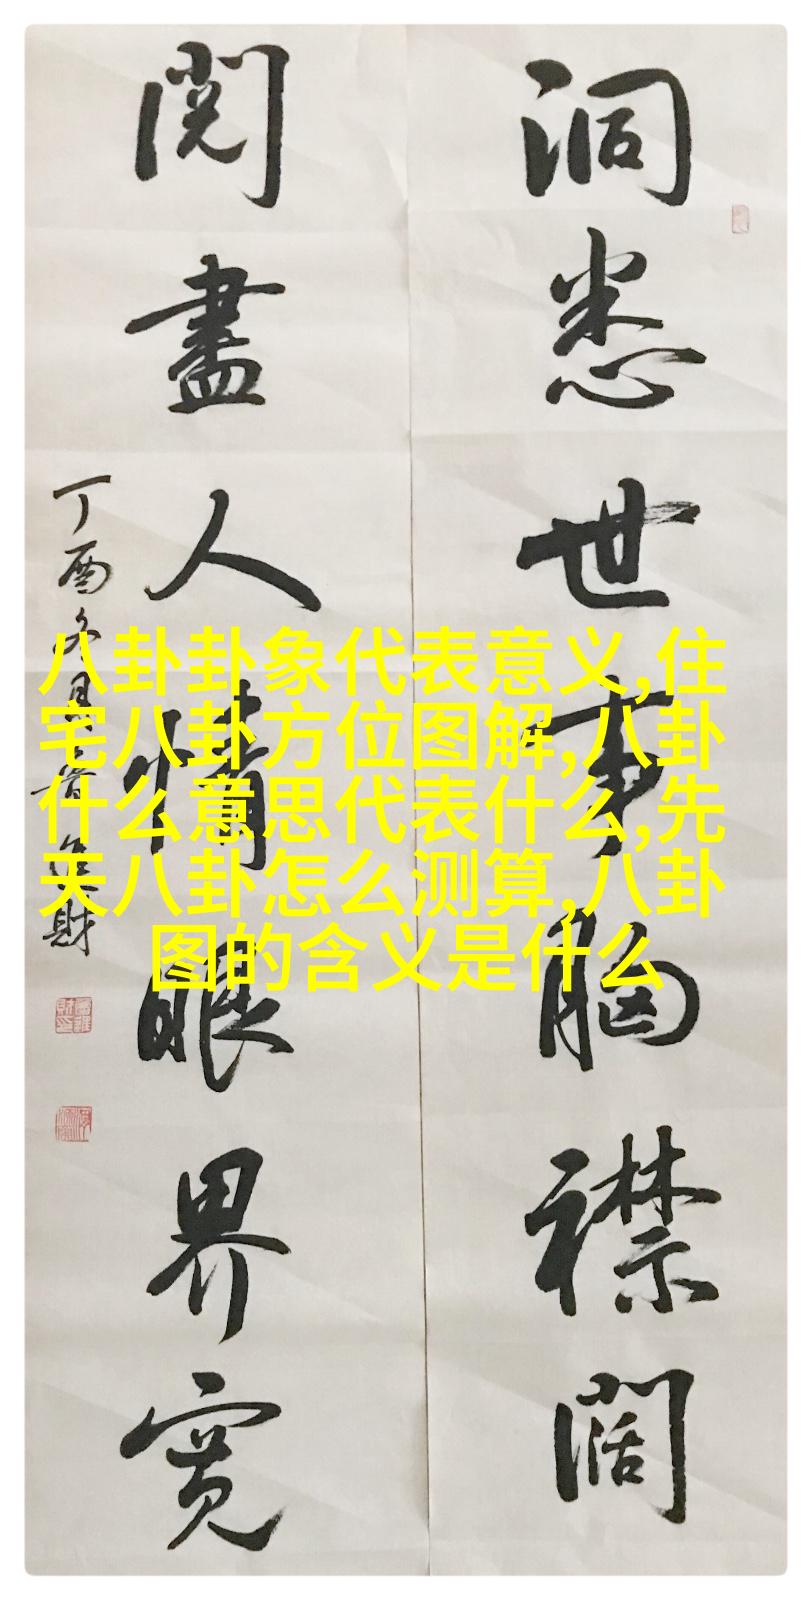 洞悉世事胸襟阔
阅盡人情眼界寬
丁酉冬月
財
八卦卦象代表意义,住
宅八卦方位图解,八卦
什么意思代表什么,先
天八卦怎么测算,八卦
图的含义是什么